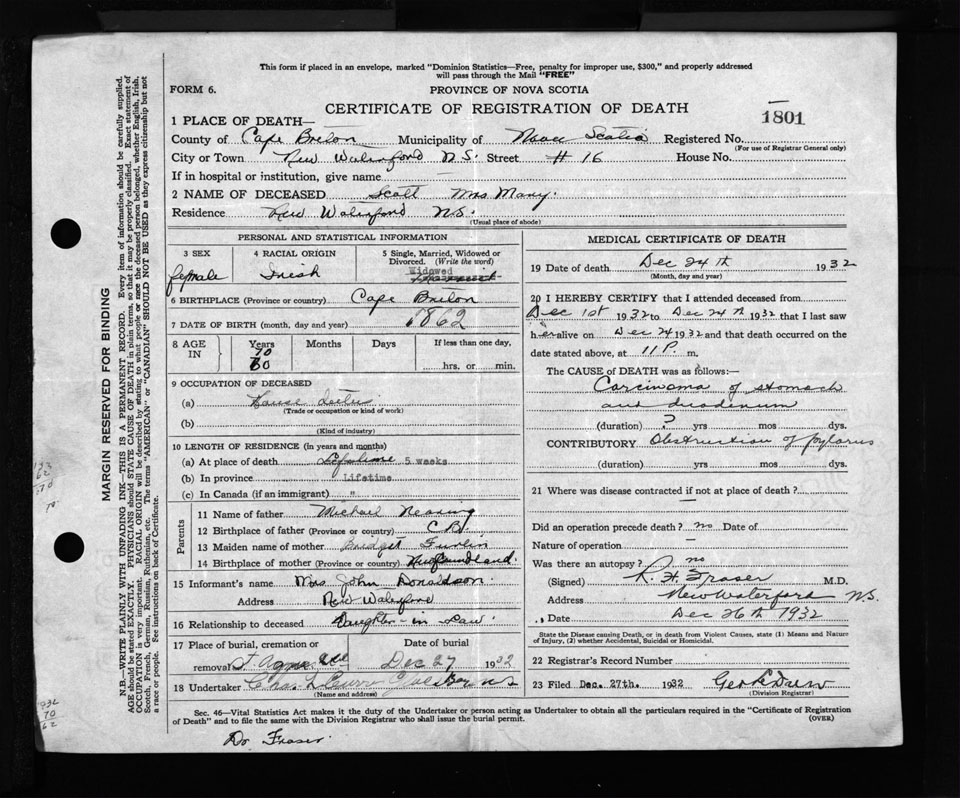 This form if placed in an envelope, marked "Dominion Statistics—Free, penalty for improper use, $300," and properly addressed
will pass through the Mail "FREE"
FORM 6. PROVINCE OF NOVA SCOTIA
CERTIFICATE OF REGISTRATION OF DEATH
1801
1 PLACE OF DEATH—
County of Cape Breton Municipality of Nova Scotia Registered No.
(For use of Registrar General only)
City or Town New Waterford N.S. Street # 16 House No.
If in hospital or institution, give name —
2 NAME OF DECEASED Scott Mrs Mary.
Residence New Waterford N.S.
(Usual place of abode)
PERSONAL AND STATISTICAL INFORMATION
3 SEX 4 RACIAL ORIGIN 5 Single, Married, Widowed or Divorced. (Write the word)
female Irish Widowed
6 BIRTHPLACE (Province or country) Cape Breton
7 DATE OF BIRTH (month, day and year) 1862
8 AGE IN Years Months Days If less than one day,
70
60 hrs. or min.
9 OCCUPATION OF DECEASED
(a) House
(Trade or occupation or kind of work)
(b)
(Kind of industry)
10 LENGTH OF RESIDENCE (in years and months)
(a) At place of death Lifetime 5 weeks
(b) In province Lifetime
(c) In Canada (if an immigrant) "
Parents
11 Name of father Michael Nearing
12 Birthplace of father (Province or country) C B.
13 Maiden name of mother Bridget
14 Birthplace of mother (Province or country) Newfoundland.
15 Informant's name Mrs John Donaldson.
Address New Waterford
16 Relationship to deceased Daughter-in Law
17 Place of burial, cremation or removal Date of burial
St. Agnes Dec 27 1932
18 Undertaker Chas L Curry N S
(Name and address)
MEDICAL CERTIFICATE OF DEATH
19 Date of death Dec 24th 1932
(Month, day and year)
20 I HEREBY CERTIFY that I attended deceased from
Dec 1st 1932 to Dec 24th 1932 that I last saw
her alive on Dec 24 1932 and that death occurred on the
date stated above, at 11 P. m.
The CAUSE of DEATH was as follows:—
Carcinoma of stomach
and duodenum
(duration) ? yrs mos dys.
CONTRIBUTORY Obstruction of pylorus
(duration) yrs mos dys.
21 Where was disease contracted if not at place of death?
—
Did an operation precede death? no Date of
Nature of operation —
Was there an autopsy? no
(Signed) R. H. Fraser M.D.
Address New Waterford N.S.
Date Dec 26th 1932
State the Disease causing Death, or in death from Violent Causes, state (1) Means and Nature
of Injury, (2) whether Accidental, Suicidal or Homicidal.
22 Registrar's Record Number
23 Filed Dec. 27th. 1932
(Division Registrar)
Sec. 46—Vital Statistics Act makes it the duty of the Undertaker or person acting as Undertaker to obtain all the particulars required in the "Certificate of Registration
of Death" and to file the same with the Division Registrar who shall issue the burial permit. (OVER)
Dr Fraser
MARGIN RESERVED FOR BINDING
N.B.—WRITE PLAINLY WITH UNFADING INK—THIS IS A PERMANENT RECORD. Every item of information should be carefully supplied.
AGE should be stated EXACTLY. PHYSICIANS should STATE CAUSE OF DEATH in plain terms, so that it may be properly classified. Exact statement of
OCCUPATION is very important. RACIAL ORIGIN will be described by stating to what people or race the deceased person belonged, whether English, Irish,
Scotch, French, German, Russian, Ruthenian, etc. The terms "AMERICAN" or "CANADIAN" SHOULD NOT BE USED as they express citizenship but not
a race or people. See instructions on back of Certificate.
193
62
70
1932
70
62